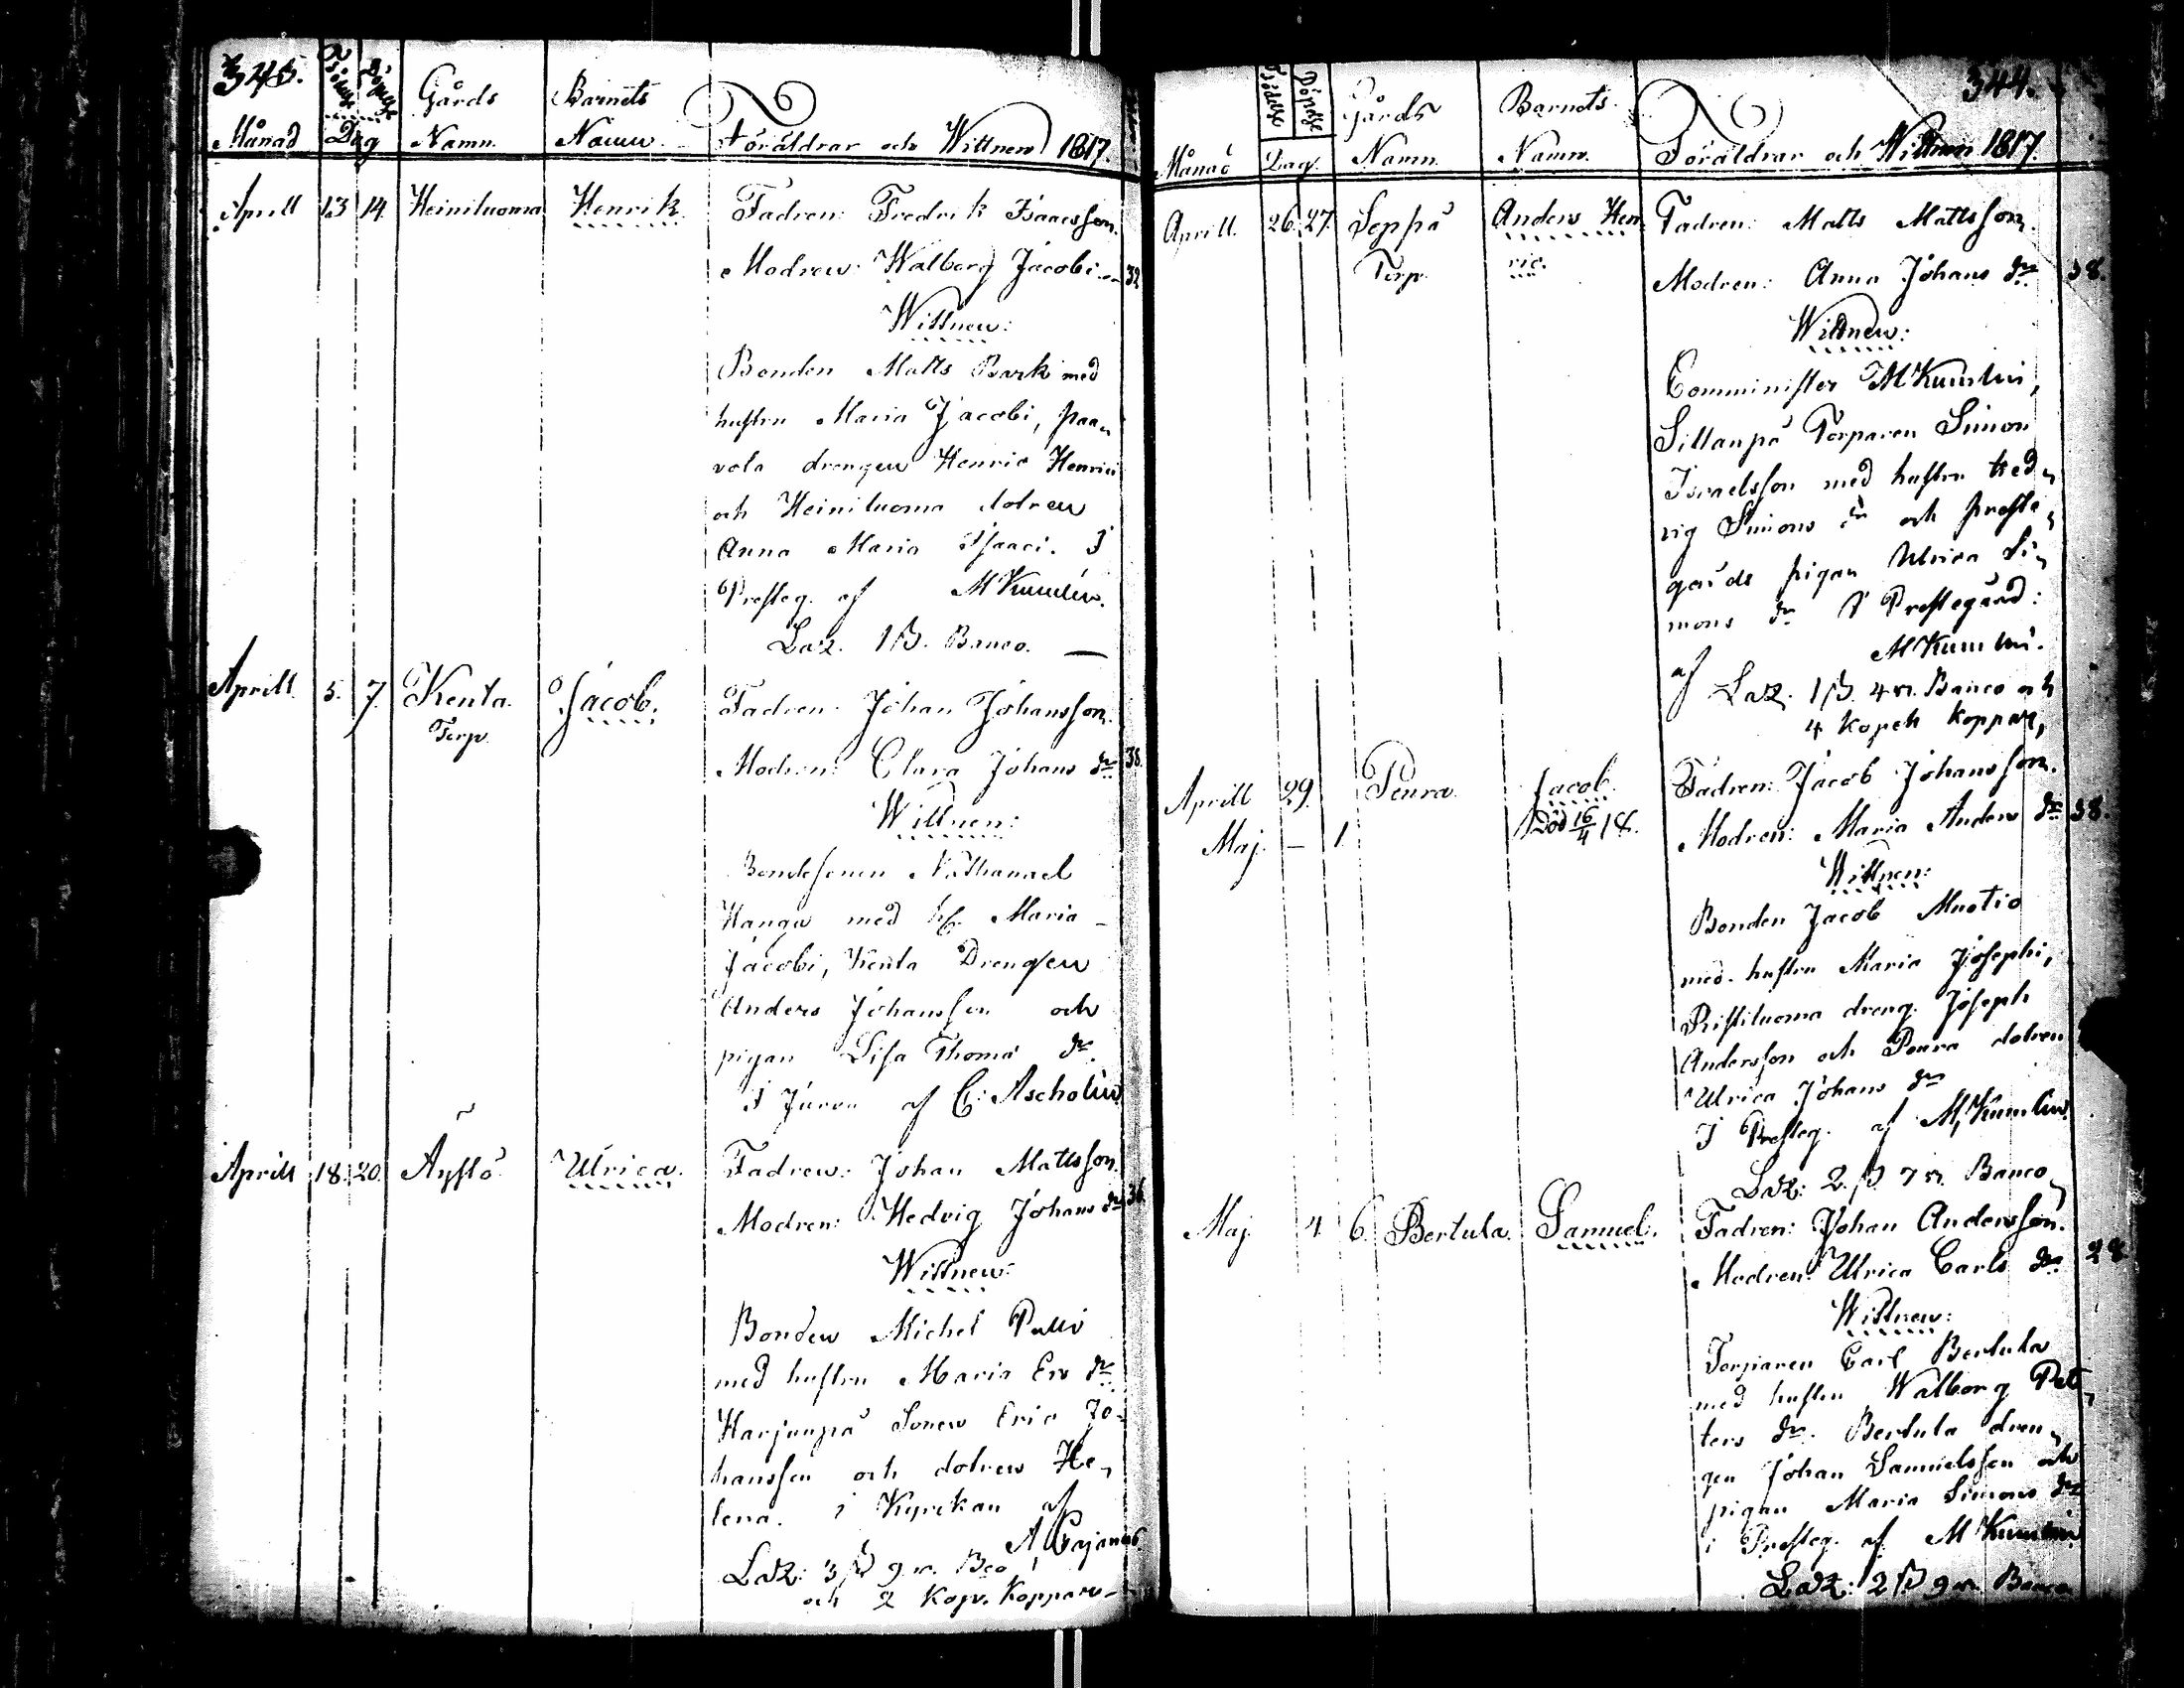 345.
Födelse Döpelse Gårds Barnets
Månad Dag Namn. Namn. Föräldrar och Wittnen 1817.
Aprill 13 14. Heiniluoma Henrik. Fadren: Fredrik Isaacsson.
Modren: Walborg Jacobi 32
Wittnen:
Bonden Matts Bark med
hustru Maria Jacobi, Paa„
vola drengen Henric Henrici
och Heiniluoma dotren
Anna Maria Isaaci. I
Presteg. af M Kumlin.
Laz. 1 β. Banco. —
Aprill 5. 7. Kenta Jacob. Fadren: Johan Johansson.
Torp.
Modren: Clara Johans dr. 38.
Wittnen:
Bondesonen Nathanael
Kangas med h. Maria
Jacobi, Kenta Drengen
Anders Johansson och
pigan Lisa Thomæ dr.
I Jurva af C: Ascholin
Aprill 18. 20. Äystö Ulrica. Fadren: Johan Mattsson.
Modren: Hedvig Johans dr 36
Wittnen:
Bonden Michel
med hustru Maria Ers dr.
Harjunpä Sonen Eric Jo-
hansson och dotren He„
lena. i Kyrckan af
A Cajanus.
Laz: 3 β 9 rr. Bco
och 2 Kop. Koppar
344.
Födelse Döpelse Gårds Barnets
Månad Dag. Namn. Namn. Föräldrar och Wittnen 1817.
Aprill. 26. 27. Seppä Anders Hen Fadren: Matts Mattsson.
Torp. ric. Modren: Anna Johans dr 38.
Wittnen:
Comminister M Kumlin,
Sillanpä Torparen Simon
Israelsson med hustru Hed„
vig Simons dr och Preste„
gårds pigan Ulrica Si„
mons dr I Prestegård:
af M Kumlin.
Laz. 1 β. 4 rr. Banco och
4 Kopek Koppar,
Aprill 29. Peura Jacob. Fadren: Jacob Johansson.
Maj. — 1. Död 16/4 18. Modren: Maria Anders dr 38.
Wittnen:
Bonden Jacob Muotio
med hustru Maria Josephi,
Ristiluoma dreng. Joseph
Andersson och Peura dotren
Ulrica Johans dr
I Presteg. af M, Kumlin.
Laz: 2. β 7 rr. Banco
Maj. 4 6. Bertula. Samuel. Fadren: Johan Andersson.
Modren: Ulrica Carls dr. 28.
Wittnen:
Torparen Carl Bertula
med hustru Walborg Pet„
ters dr. Bertula dren„
gen Johan Samuelsson och
pigan Maria Simons dr
i Presteg. af M Kumlin
Laz: 2 β 9 rr. Banco